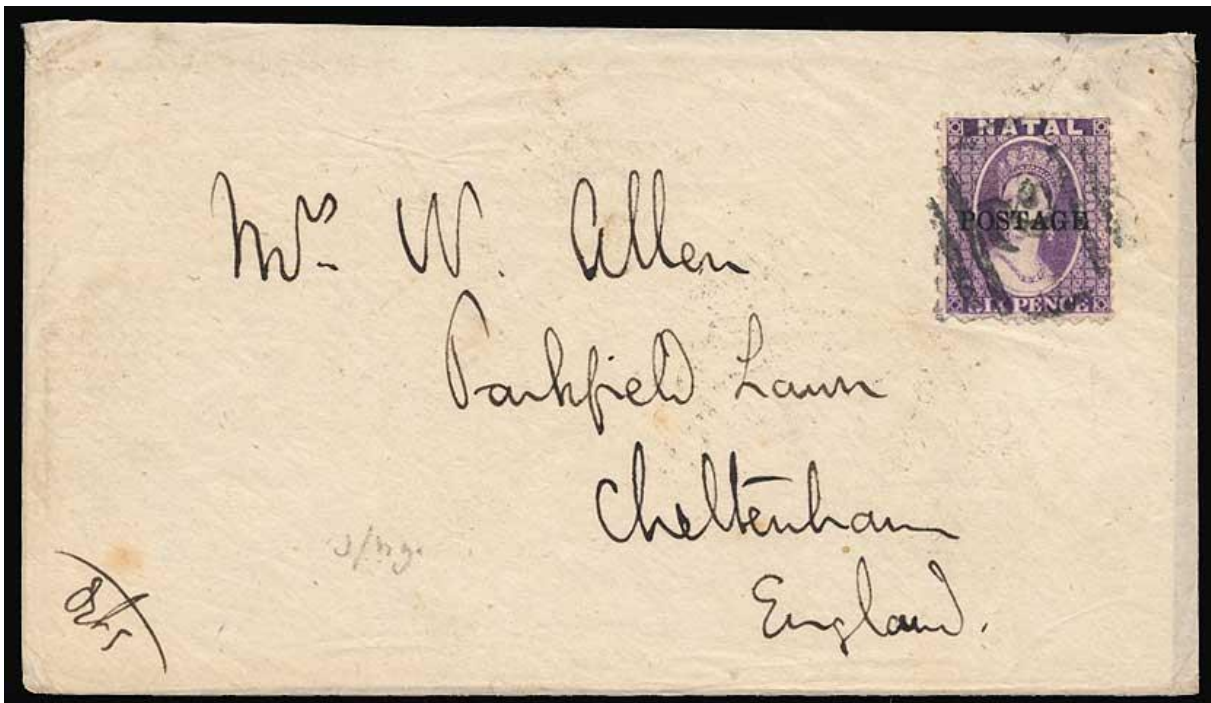 NATAL
POSTAGE
SIX PENCE
Mrs. W. Allen
Parkfield Lawn
Cheltenham
England.